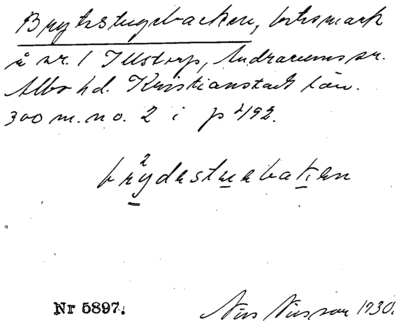 Brydestugebacken, betesmark
å nr. 1 Illstorp, Andrarums sn.
Albo hd. Kristianstads län.
300 m. no. 2 i p 492.
brydastuabaken
Nr 5897.
Nils Nilsson 1930.